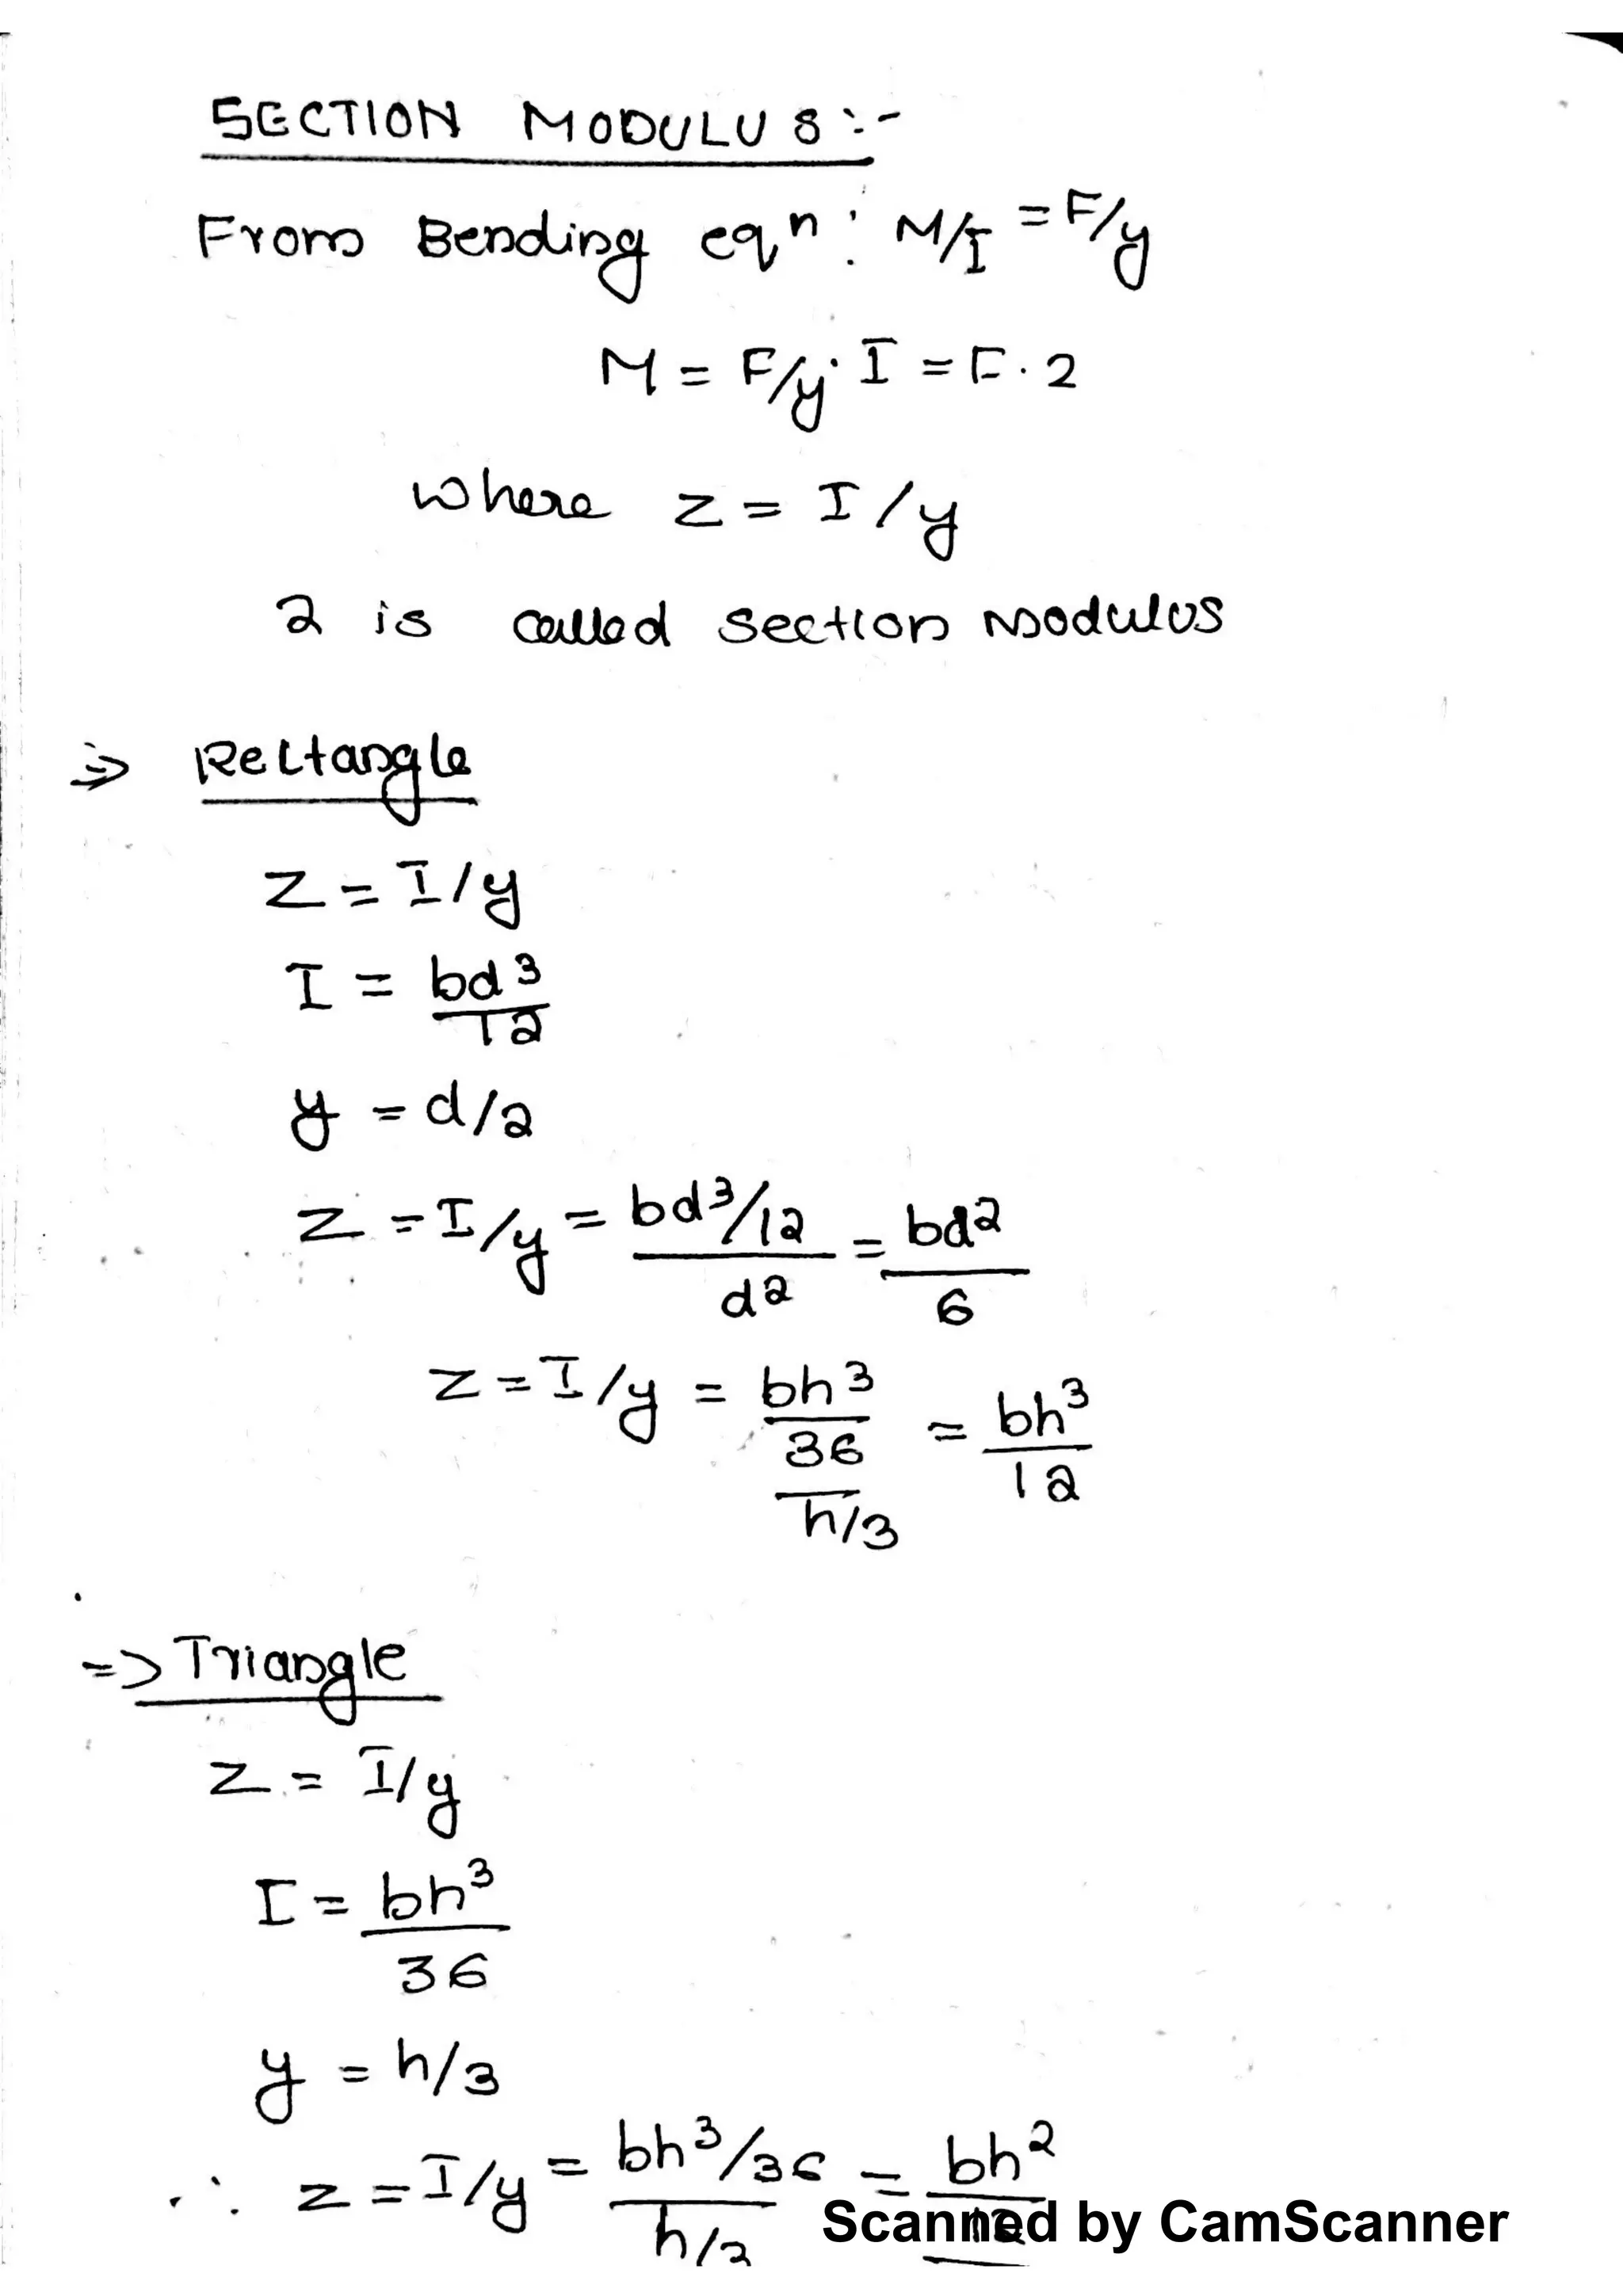 SECTION MODULUS:-
From Bending eqn: M/I = F/y
M = F/y · I = F · 2
where z = I/y
2 is called section modulus
=> Rectangle
Z = I/y
I = bd³/12
y = d/2
Z = I/y = bd³/12 / d2 = bd²/6
Z = I/y = bh³/36 / h/3 = bh³/12
=> Triangle
Z = I/y
I = bh³/36
y = h/3
∴ z = I/y = bh³/36 / h/3 = bh²/12
Scanned by CamScanner